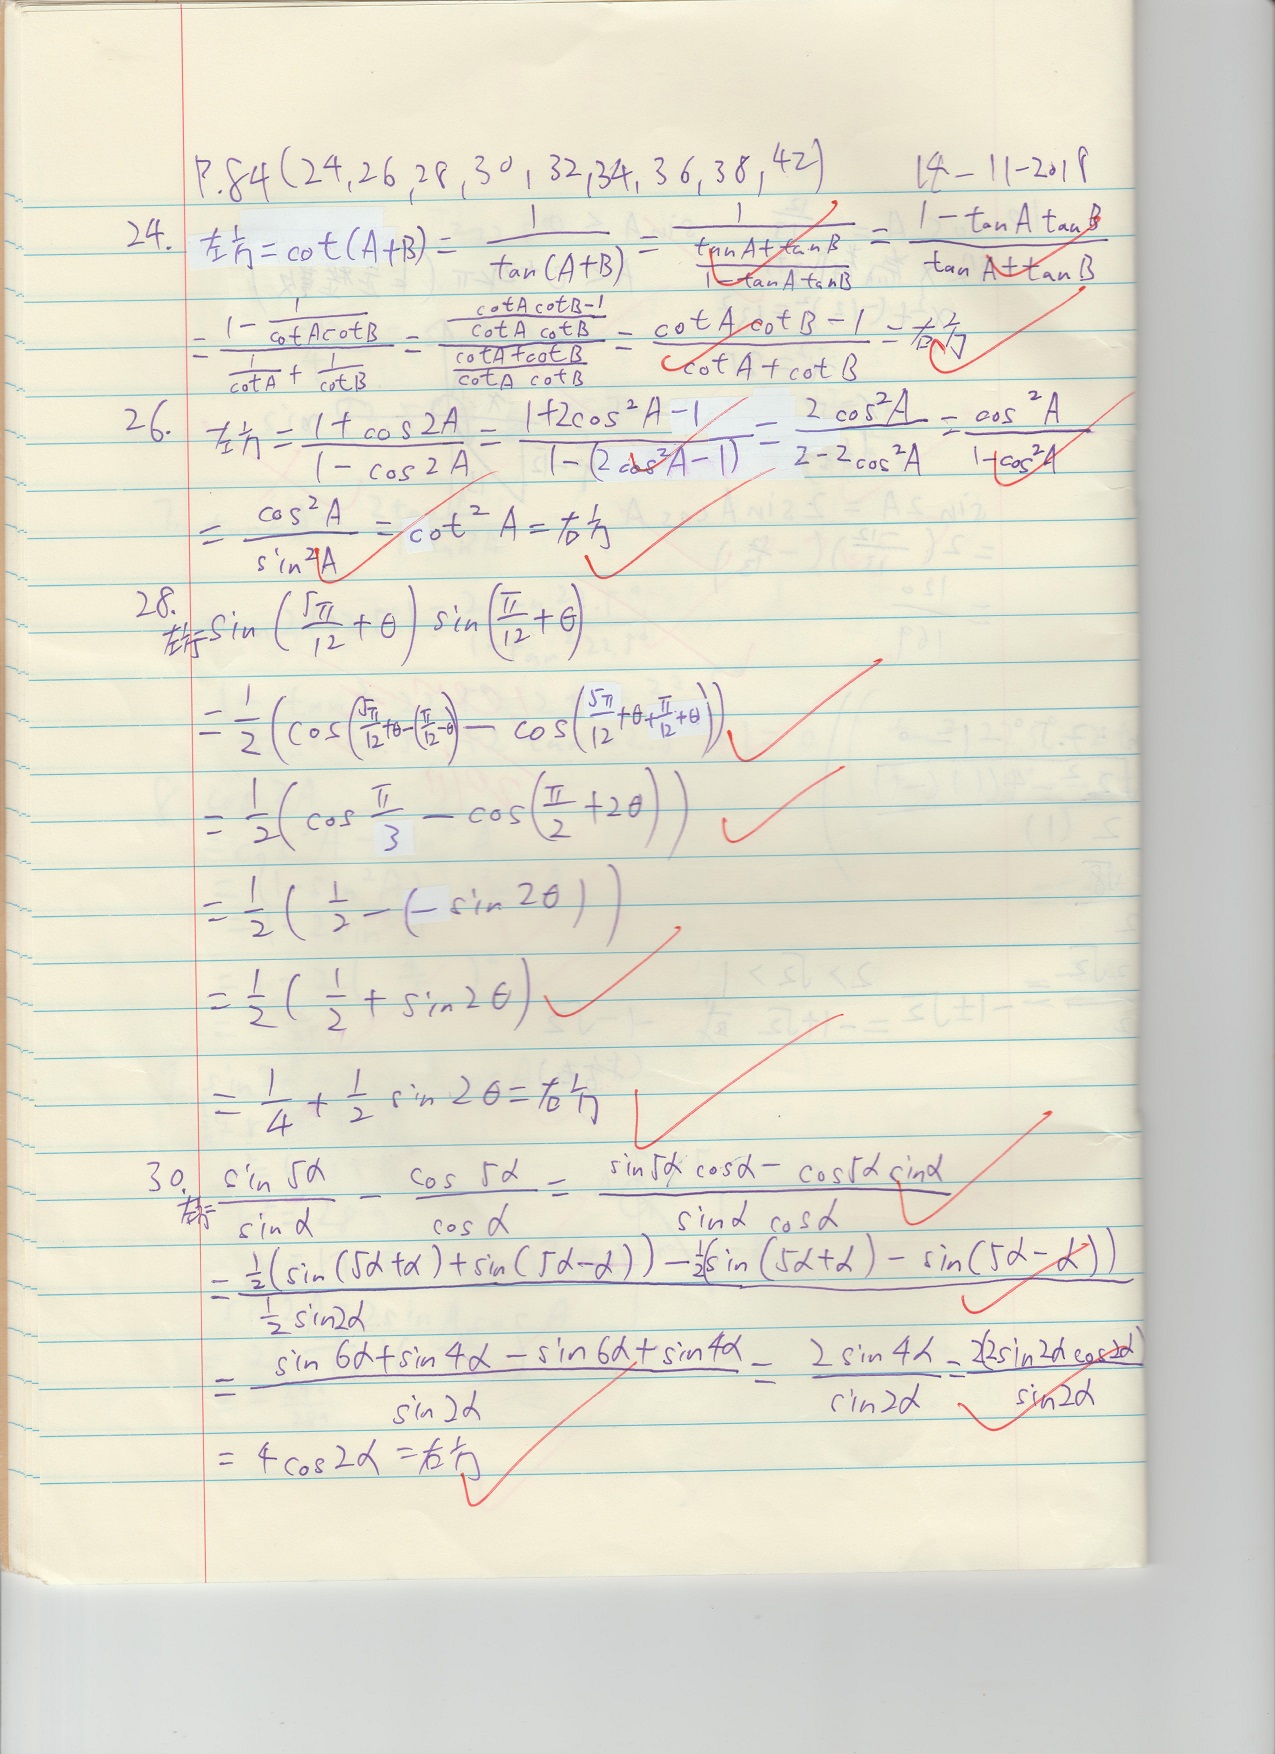 P.84(24,26,28,30,32,34,36,38,42) 14-11-2018
24. 左方=cot(A+B)=1/tan(A+B)=1/((tanA+tanB)/(1-tanAtanB))=(1-tanAtanB)/(tanA+tanB)
=(1-1/(cotAcotB))/(1/cotA+1/cotB)=((cotAcotB-1)/(cotAcotB))/((cotA+cotB)/(cotAcotB))=(cotAcotB-1)/(cotA+cotB)=右方
26. 左方=(1+cos2A)/(1-cos2A)=(1+2cos²A-1)/(1-(2cos²A-1))=2cos²A/(2-2cos²A)=cos²A/(1-cos²A)
=cos²A/sin²A=cot²A=右方
28.
左方=sin(5π/12+θ)sin(π/12+θ)
=1/2(cos(5π/12+θ-(π/12-θ))-cos(5π/12+θ+π/12+θ))
=1/2(cosπ/3-cos(π/2+2θ))
=1/2(1/2-(-sin2θ))
=1/2(1/2+sin2θ)
=1/4+1/2sin2θ=右方
30. 左方=sin5α/sinα-cos5α/cosα=(sin5αcosα-cos5αsinα)/(sinαcosα)
=(1/2(sin(5α+α)+sin(5α-α))-1/2(sin(5α+α)-sin(5α-α)))/(1/2sin2α)
=(sin6α+sin4α-sin6α+sin4α)/sin2α=2sin4α/sin2α=2(2sin2αcos2α)/sin2α
=4cos2α=右方